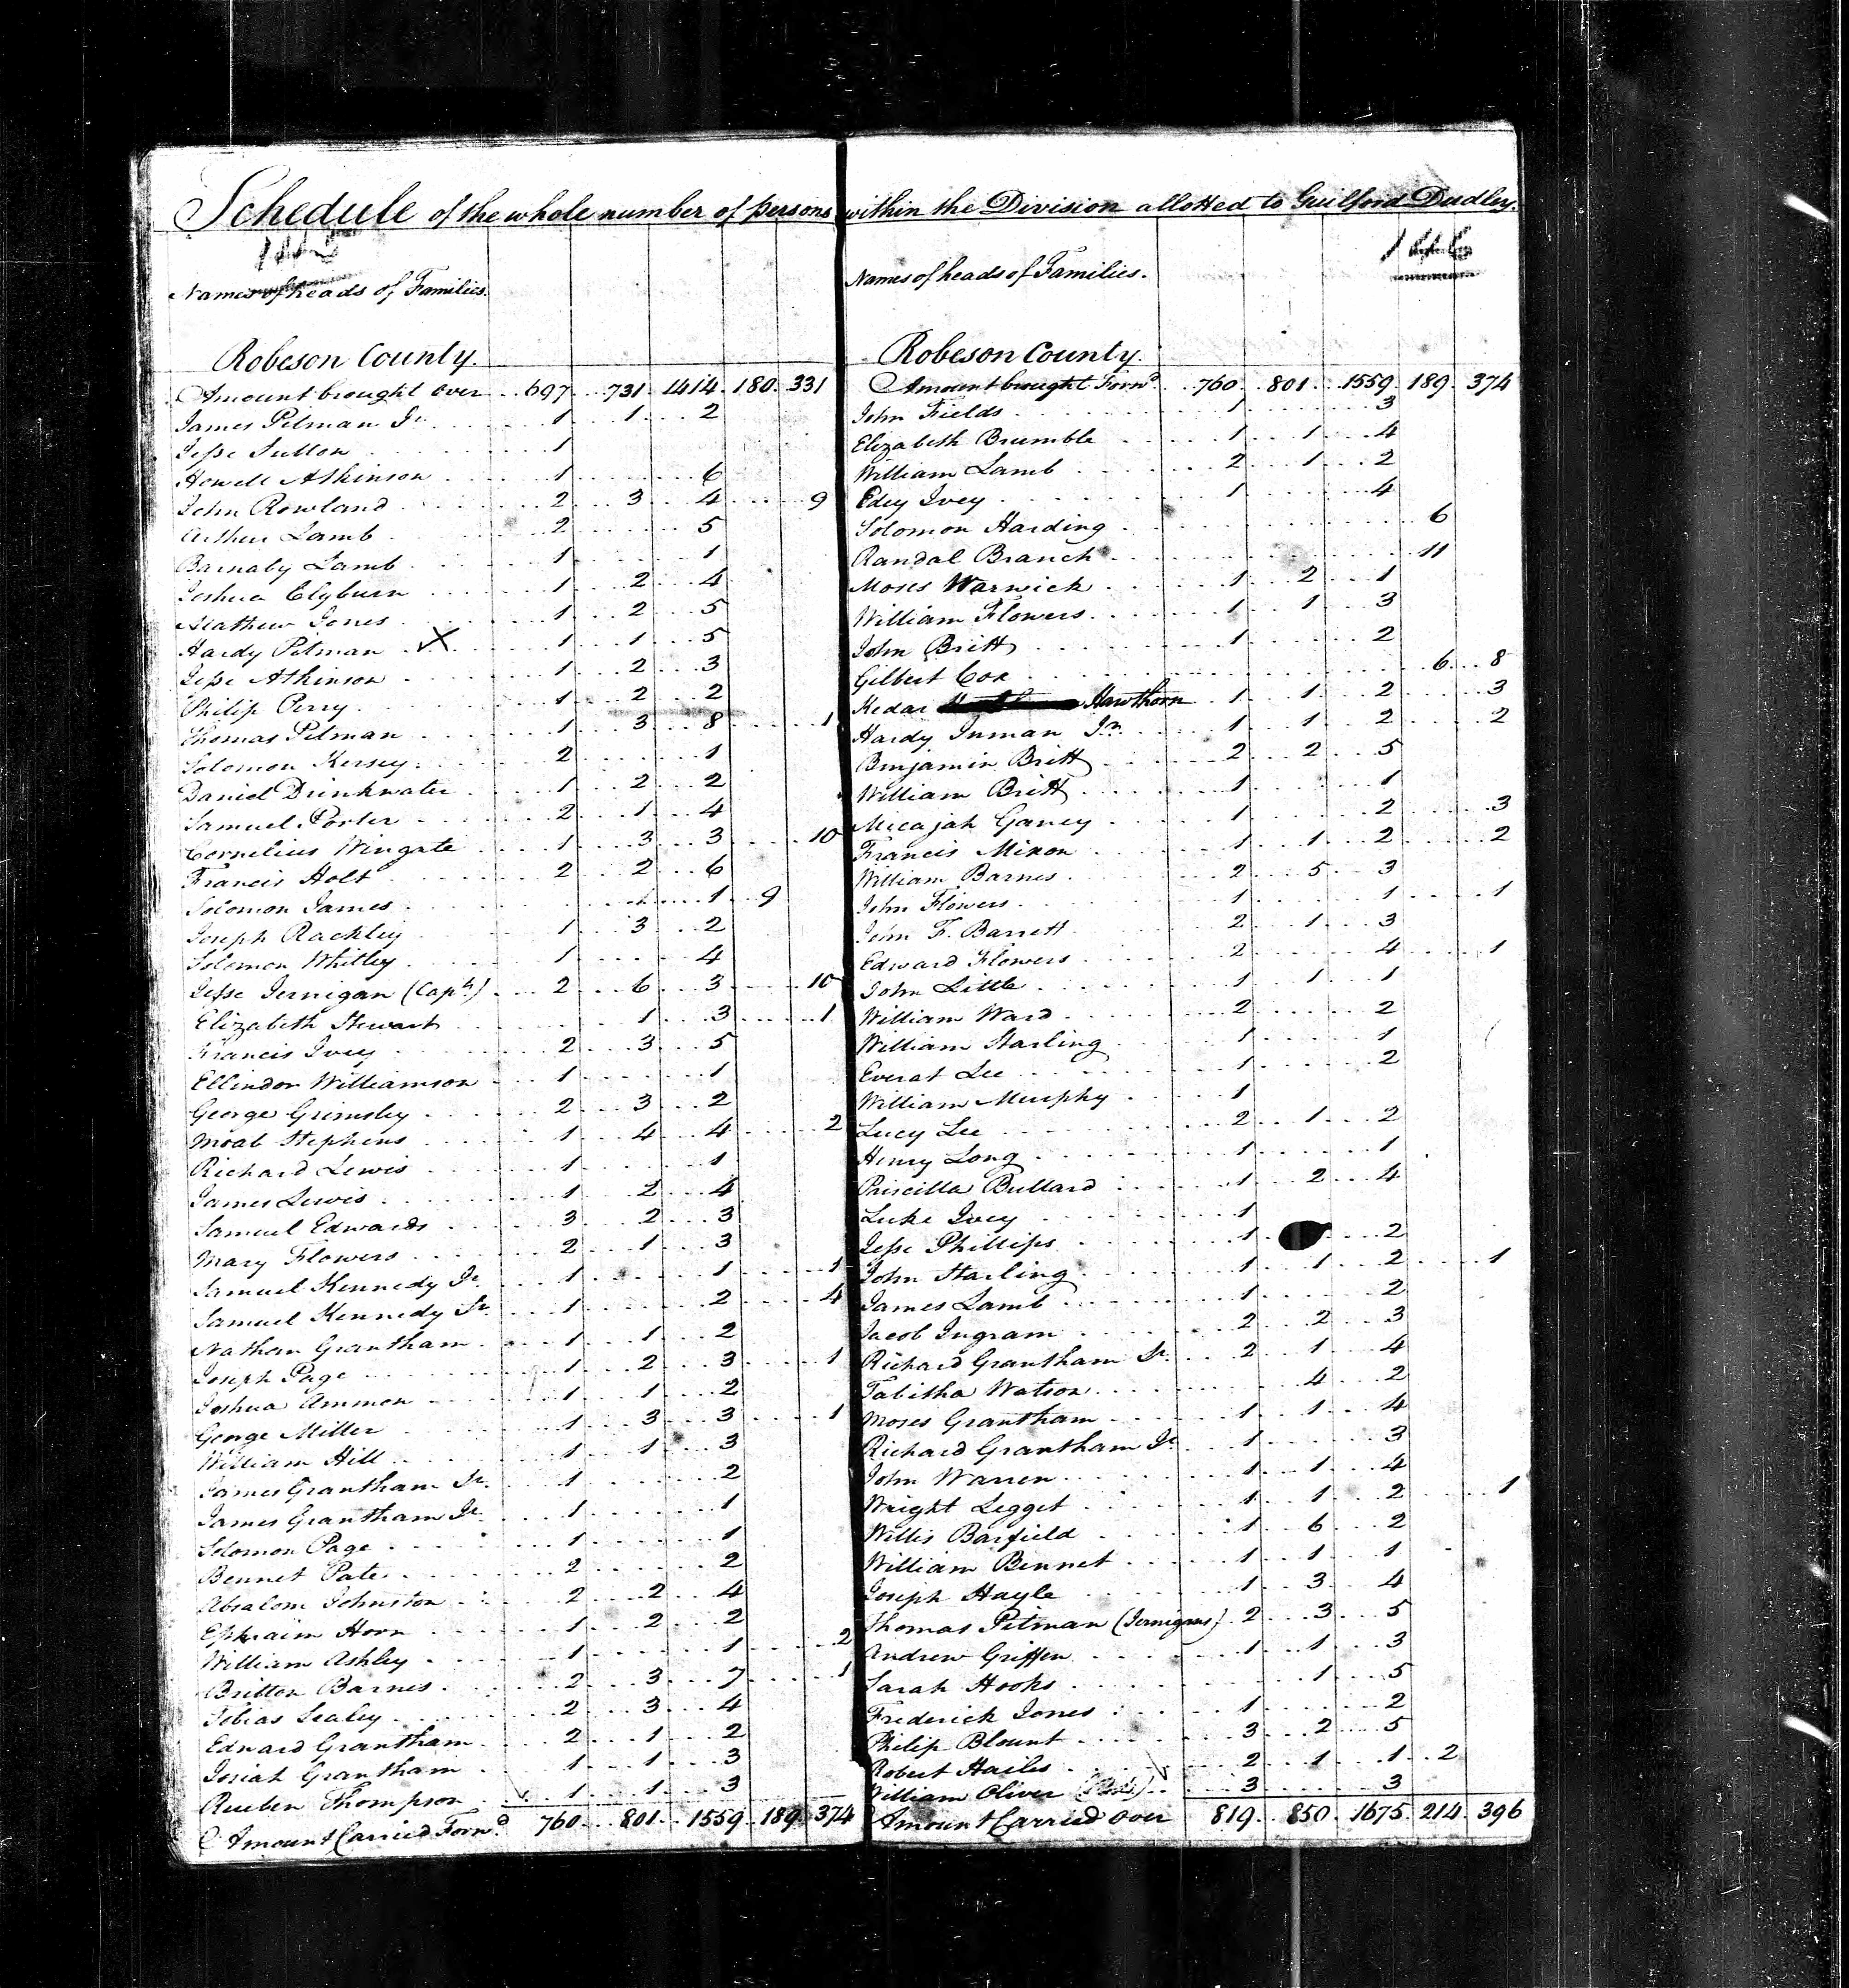 Schedule of the whole number of persons within the Division allotted to Guilford Dudley.
Names of heads of Families.
Robeson County.
Amount brought over 697 731 1414 180 331
James Pitman Jr. 1 1 2
Jesse Sutton 1
Howell Atkinson 1 6
John Rowland 2 3 4 9
Arthur Lamb 2 5
Barnaby Lamb 1 1
Joshua Clyburn 1 2 4
Mathew Jones 1 2 5
Hardy Pitman X 1 1 5
Jesse Atkinson 1 2 3
Philip Perry 1 2 2
Thomas Pitman 1 3 8 1
Solomon Kersey 2 1
Daniel Drinkwater 1 2 2
Samuel Porter 2 1 4
Cornelius Wingate 1 3 3 10
Francis Holt 2 2 6
Solomon James 1 9
Joseph Rackley 1 3 2
Solomon Whitley 1 4
Jesse Jernigan (Capt.) 2 6 3 10
Elizabeth Stewart 1 3 1
Francis Ivey 2 3 5
Ellindor Williamson 1 1
George Grimsley 2 3 2
Moab Stephens 1 4 4 2
Richard Lewis 1 1
James Lewis 1 2 4
Samuel Edwards 3 2 3
Mary Flowers 2 1 3
Samuel Kennedy Jr. 1 1 1
Samuel Kennedy Sr. 1 2 4
Nathan Grantham 1 1 2
Joseph Page 1 2 3 1
Joshua Ammon 1 1 2
George Miller 1 3 3 1
William Hill 1 1 3
James Grantham Sr. 1 2
James Grantham Jr. 1 1
Solomon Page 1 1
Bennet Pate 2 2
Absalom Johnston 2 2 4
Ephraim Horn 1 2 2
William Ashley 1 1 2
Britton Barnes 2 3 7 1
Tobias Sealey 2 3 4
Edward Grantham 2 1 2
Josiah Grantham 1 1 3
Reuben Thompson 1 1 3
Amount Carried Forwd. 760 801 1559 189 374
146
Names of heads of Families.
Robeson County.
Amount brought Forwd. 760 801 1559 189 374
John Fields 1 3
Elizabeth Brumble 1 1 4
William Lamb 2 1 2
Edey Ivey 1 4
Solomon Harding 6
Randal Branch 11
Moses Warwick 1 2 1
William Flowers 1 1 3
John Britt 1 2
Gilbert Cox 6 8
Kedar Hawthorn 1 1 2 3
Hardy Inman Jr. 1 1 2 2
Benjamin Britt 2 2 5
William Britt 1 1
Micajah Ganey 1 2 3
Francis Mixon 1 1 2 2
William Barnes 2 5 3
John Flowers 1 1 1
John F. Barrett 2 1 3
Edward Flowers 2 4 1
John Little 1 1 1
William Ward 2 2
William Starling 1 1
Everat Lee 1 2
William Murphy 1
Lucy Lee 2 1 2
Henry Long 1 1
Priscilla Bullard 1 2 4
Luke Ivey 1
Jesse Phillips 1 2
John Starling 1 1 2 1
James Lamb 1 2
Jacob Ingram 2 2 3
Richard Grantham Sr. 2 1 4
Tabitha Watson 4 2
Moses Grantham 1 1 4
Richard Grantham Jr. 1 3
John Warren 1 1 4
Wright Legget 1 1 2 1
Willis Barfield 1 6 2
William Bennet 1 1 1
Joseph Hayle 1 3 4
Thomas Pitman (Jernigans) 2 3 5
Andrew Griffen 1 1 3
Sarah Hooks 1 5
Frederick Jones 1 2
Philip Blount 3 2 5
Robert Hailes 2 1 1 2
William Oliver 3 3
Amount Carried Over 819 850 1675 214 396